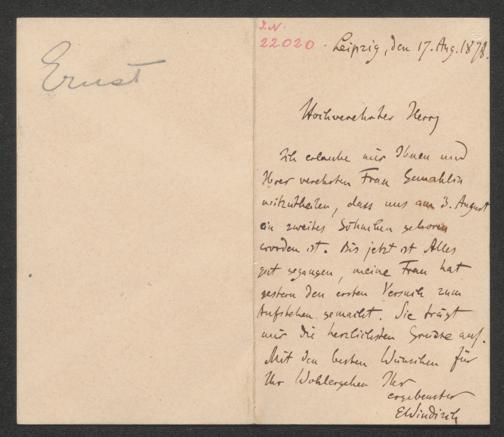 Ernst
J.N.
22020
Leipzig, den 17. Aug. 1878.
Hochverehrter Herr,
Ich erlaube mir Ihnen und
Ihrer verehrten Frau Gemahlin
mitzutheilen, dass uns am 3. August
ein zweites Söhnchen geboren
worden ist. Bis jetzt ist Alles
gut gegangen, meine Frau hat
gestern den ersten Versuch zum
Aufstehen gemacht. Sie trägt
mir die herzlichsten Grüsse auf.
Mit den besten Wünschen für
Ihr Wohlergehen Ihr
ergebenster
EWindisch